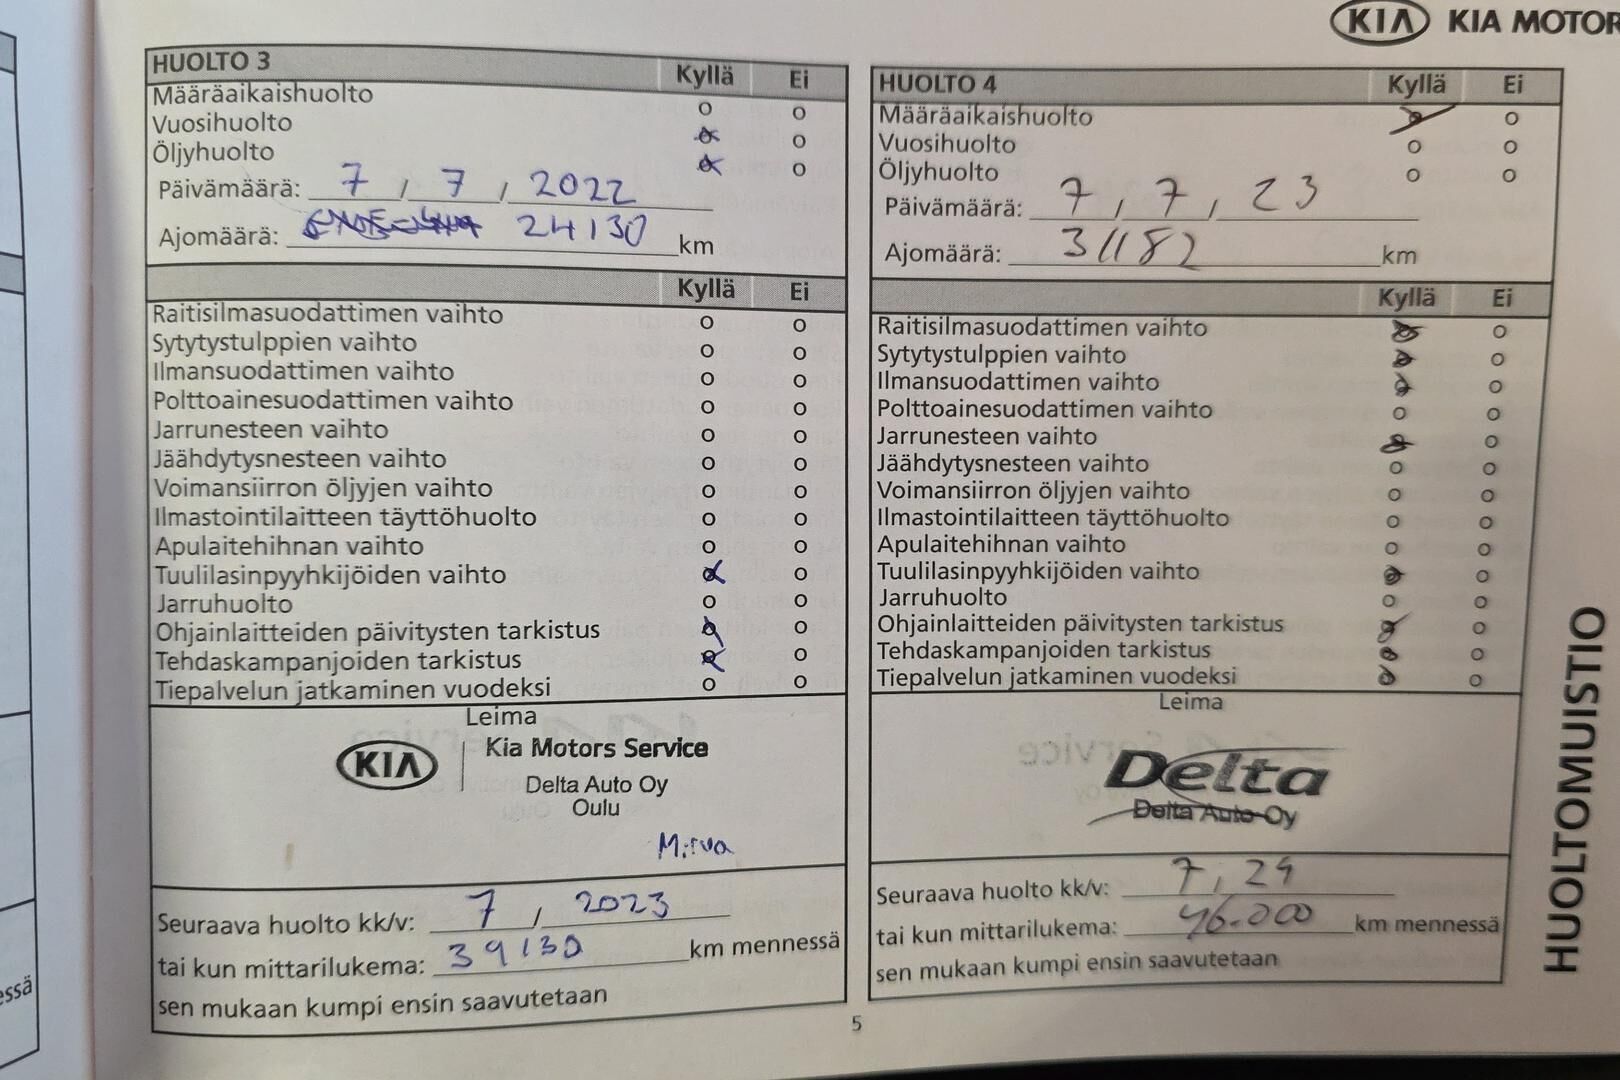 KIA KIA MOTOR
HUOLTO 3 Kyllä Ei
Määräaikaishuolto
Vuosihuolto
Öljyhuolto
Päivämäärä: 7 / 7 / 2022
Ajomäärä: 24130 km
Kyllä Ei
Raitisilmasuodattimen vaihto
Sytytystulppien vaihto
Ilmansuodattimen vaihto
Polttoainesuodattimen vaihto
Jarrunesteen vaihto
Jäähdytysnesteen vaihto
Voimansiirron öljyjen vaihto
Ilmastointilaitteen täyttöhuolto
Apulaitehihnan vaihto
Tuulilasinpyyhkijöiden vaihto
Jarruhuolto
Ohjainlaitteiden päivitysten tarkistus
Tehdaskampanjoiden tarkistus
Tiepalvelun jatkaminen vuodeksi
Leima
KIA Kia Motors Service
Delta Auto Oy
Oulu
Mirva
Seuraava huolto kk/v: 7 / 2023
tai kun mittarilukema: 39130 km mennessä
sen mukaan kumpi ensin saavutetaan
HUOLTO 4 Kyllä Ei
Määräaikaishuolto
Vuosihuolto
Öljyhuolto
Päivämäärä: 7 / 7 / 23
Ajomäärä: 31182 km
Kyllä Ei
Raitisilmasuodattimen vaihto
Sytytystulppien vaihto
Ilmansuodattimen vaihto
Polttoainesuodattimen vaihto
Jarrunesteen vaihto
Jäähdytysnesteen vaihto
Voimansiirron öljyjen vaihto
Ilmastointilaitteen täyttöhuolto
Apulaitehihnan vaihto
Tuulilasinpyyhkijöiden vaihto
Jarruhuolto
Ohjainlaitteiden päivitysten tarkistus
Tehdaskampanjoiden tarkistus
Tiepalvelun jatkaminen vuodeksi
Leima
Delta
Delta Auto Oy
Seuraava huolto kk/v: 7 / 24
tai kun mittarilukema: 46.000 km mennessä
sen mukaan kumpi ensin saavutetaan
HUOLTOMUISTIO
5